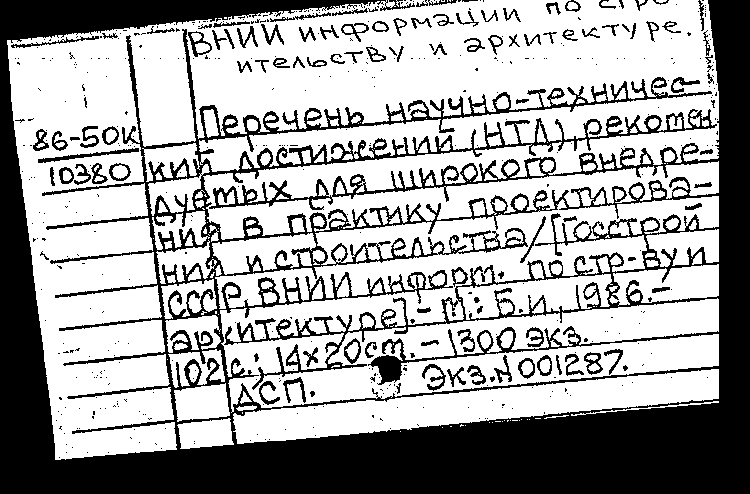 ВНИИ информации по стро-
ительству и архитектуре.
Перечень научно-техничес-
86-50к
10380
кий достижений (НТД), рекомен
дуемых для широкого внедре-
ния в практику проектирова-
ния и строительства/[Госстрой
СССР, ВНИИ информ. по стр-ву и
архитектуре].- М.: Б.и., 1986.-
102 с.; 14х20см. - 1300 экз.
ДСП. Экз.N001287.